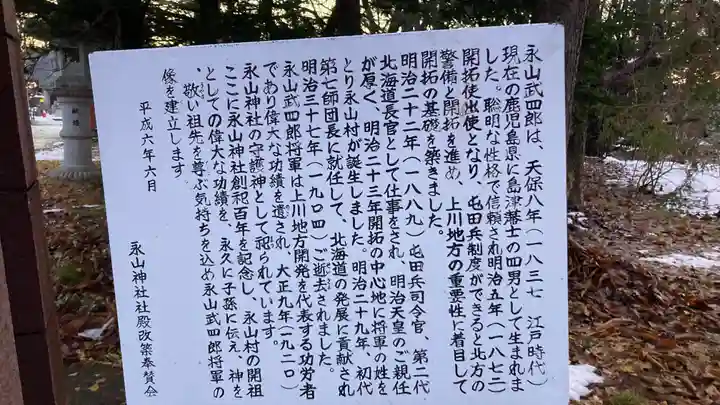 永山武四郎は、天保八年(一八三七　江戸時代)
現在の鹿児島県に島津藩士の四男として生まれま
した。聡明な性格で信頼され明治五年(一八七二)
開拓使出使となり、屯田兵制度ができると北方の
警備と開拓を進め、上川地方の重要性に着目して
開拓の基礎を築きました。
明治二十二年(一八八九)屯田兵司令官、第二代
北海道長官として仕事をされ、明治天皇のご親任
が厚く、明治二十三年開拓の中心地に将軍の姓を
とり永山村が誕生しました。明治二十九年、初代
第七師団長に就任して、北海道の発展に貢献され
明治三十七年(一九〇四)ご逝去されました。
永山武四郎将軍は上川地方開発を代表する功労者
であり偉大な功績を遺され、大正九年(一九二〇)
永山神社の守護神として祀られています。
ここに永山神社創祀百年を記念し、永山村の開祖
としての偉大な功績を、永久に子孫に伝え、神を
敬い祖先を尊ぶ気持ちを込め永山武四郎将軍の
像を建立します。
平成六年六月
永山神社社殿改築奉賛会